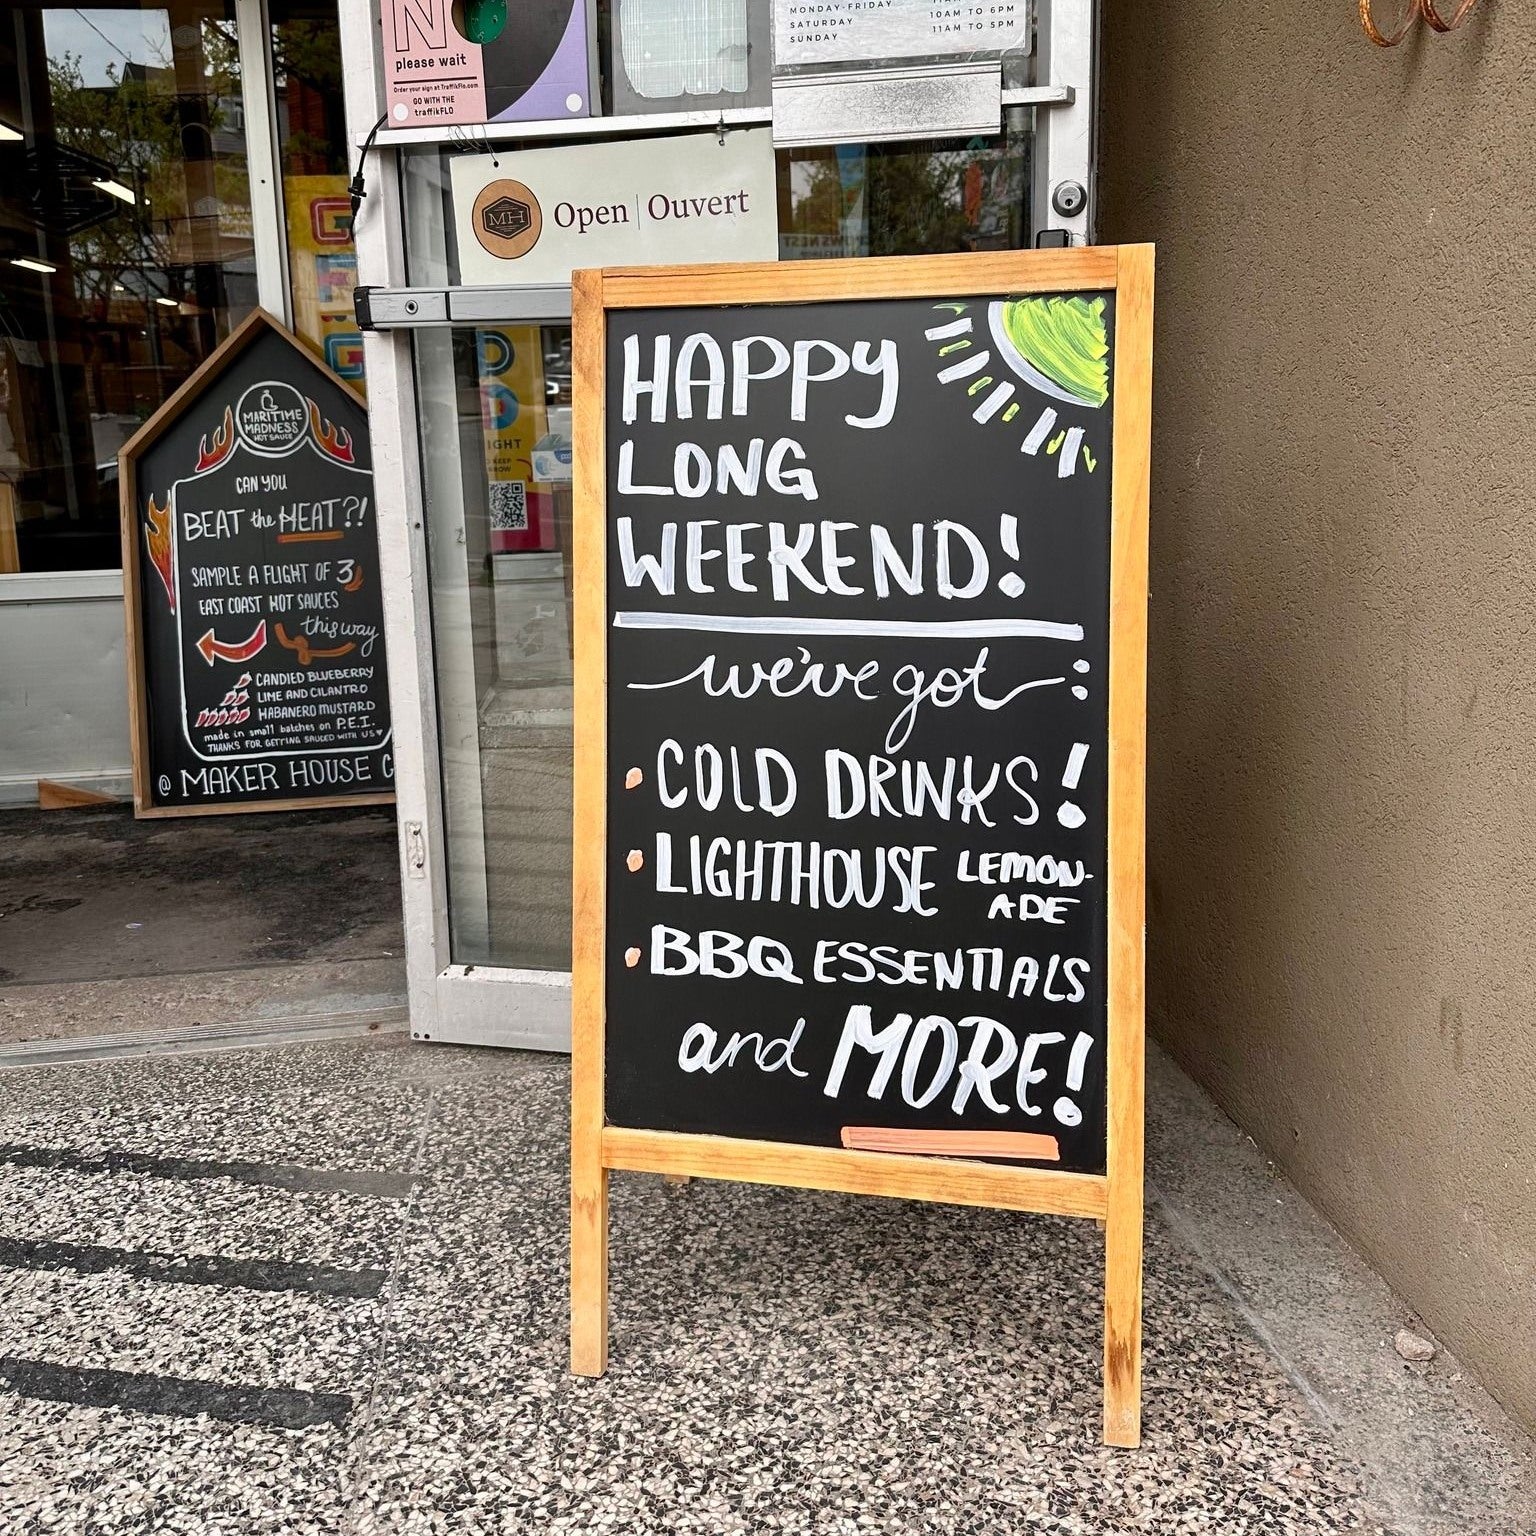 N
please wait
Order your sign at TraffikFlo.com
GO WITH THE
traffikFLO
MONDAY-FRIDAY
SATURDAY 10AM TO 6PM
SUNDAY 11AM TO 5PM
MH
Open | Ouvert
HAPPY
LONG
WEEKEND!
we've got:
• COLD DRINKS!
• LIGHTHOUSE LEMON-
ADE
• BBQ ESSENTIALS
and MORE!
MARITIME
MADNESS
HOT SAUCE
CAN YOU
BEAT the HEAT?!
SAMPLE A FLIGHT OF 3
EAST COAST HOT SAUCES
this way
CANDIED BLUEBERRY
LIME AND CILANTRO
HABANERO MUSTARD
made in small batches on P.E.I.
THANKS FOR GETTING SAUCED WITH US
@ MAKER HOUSE C